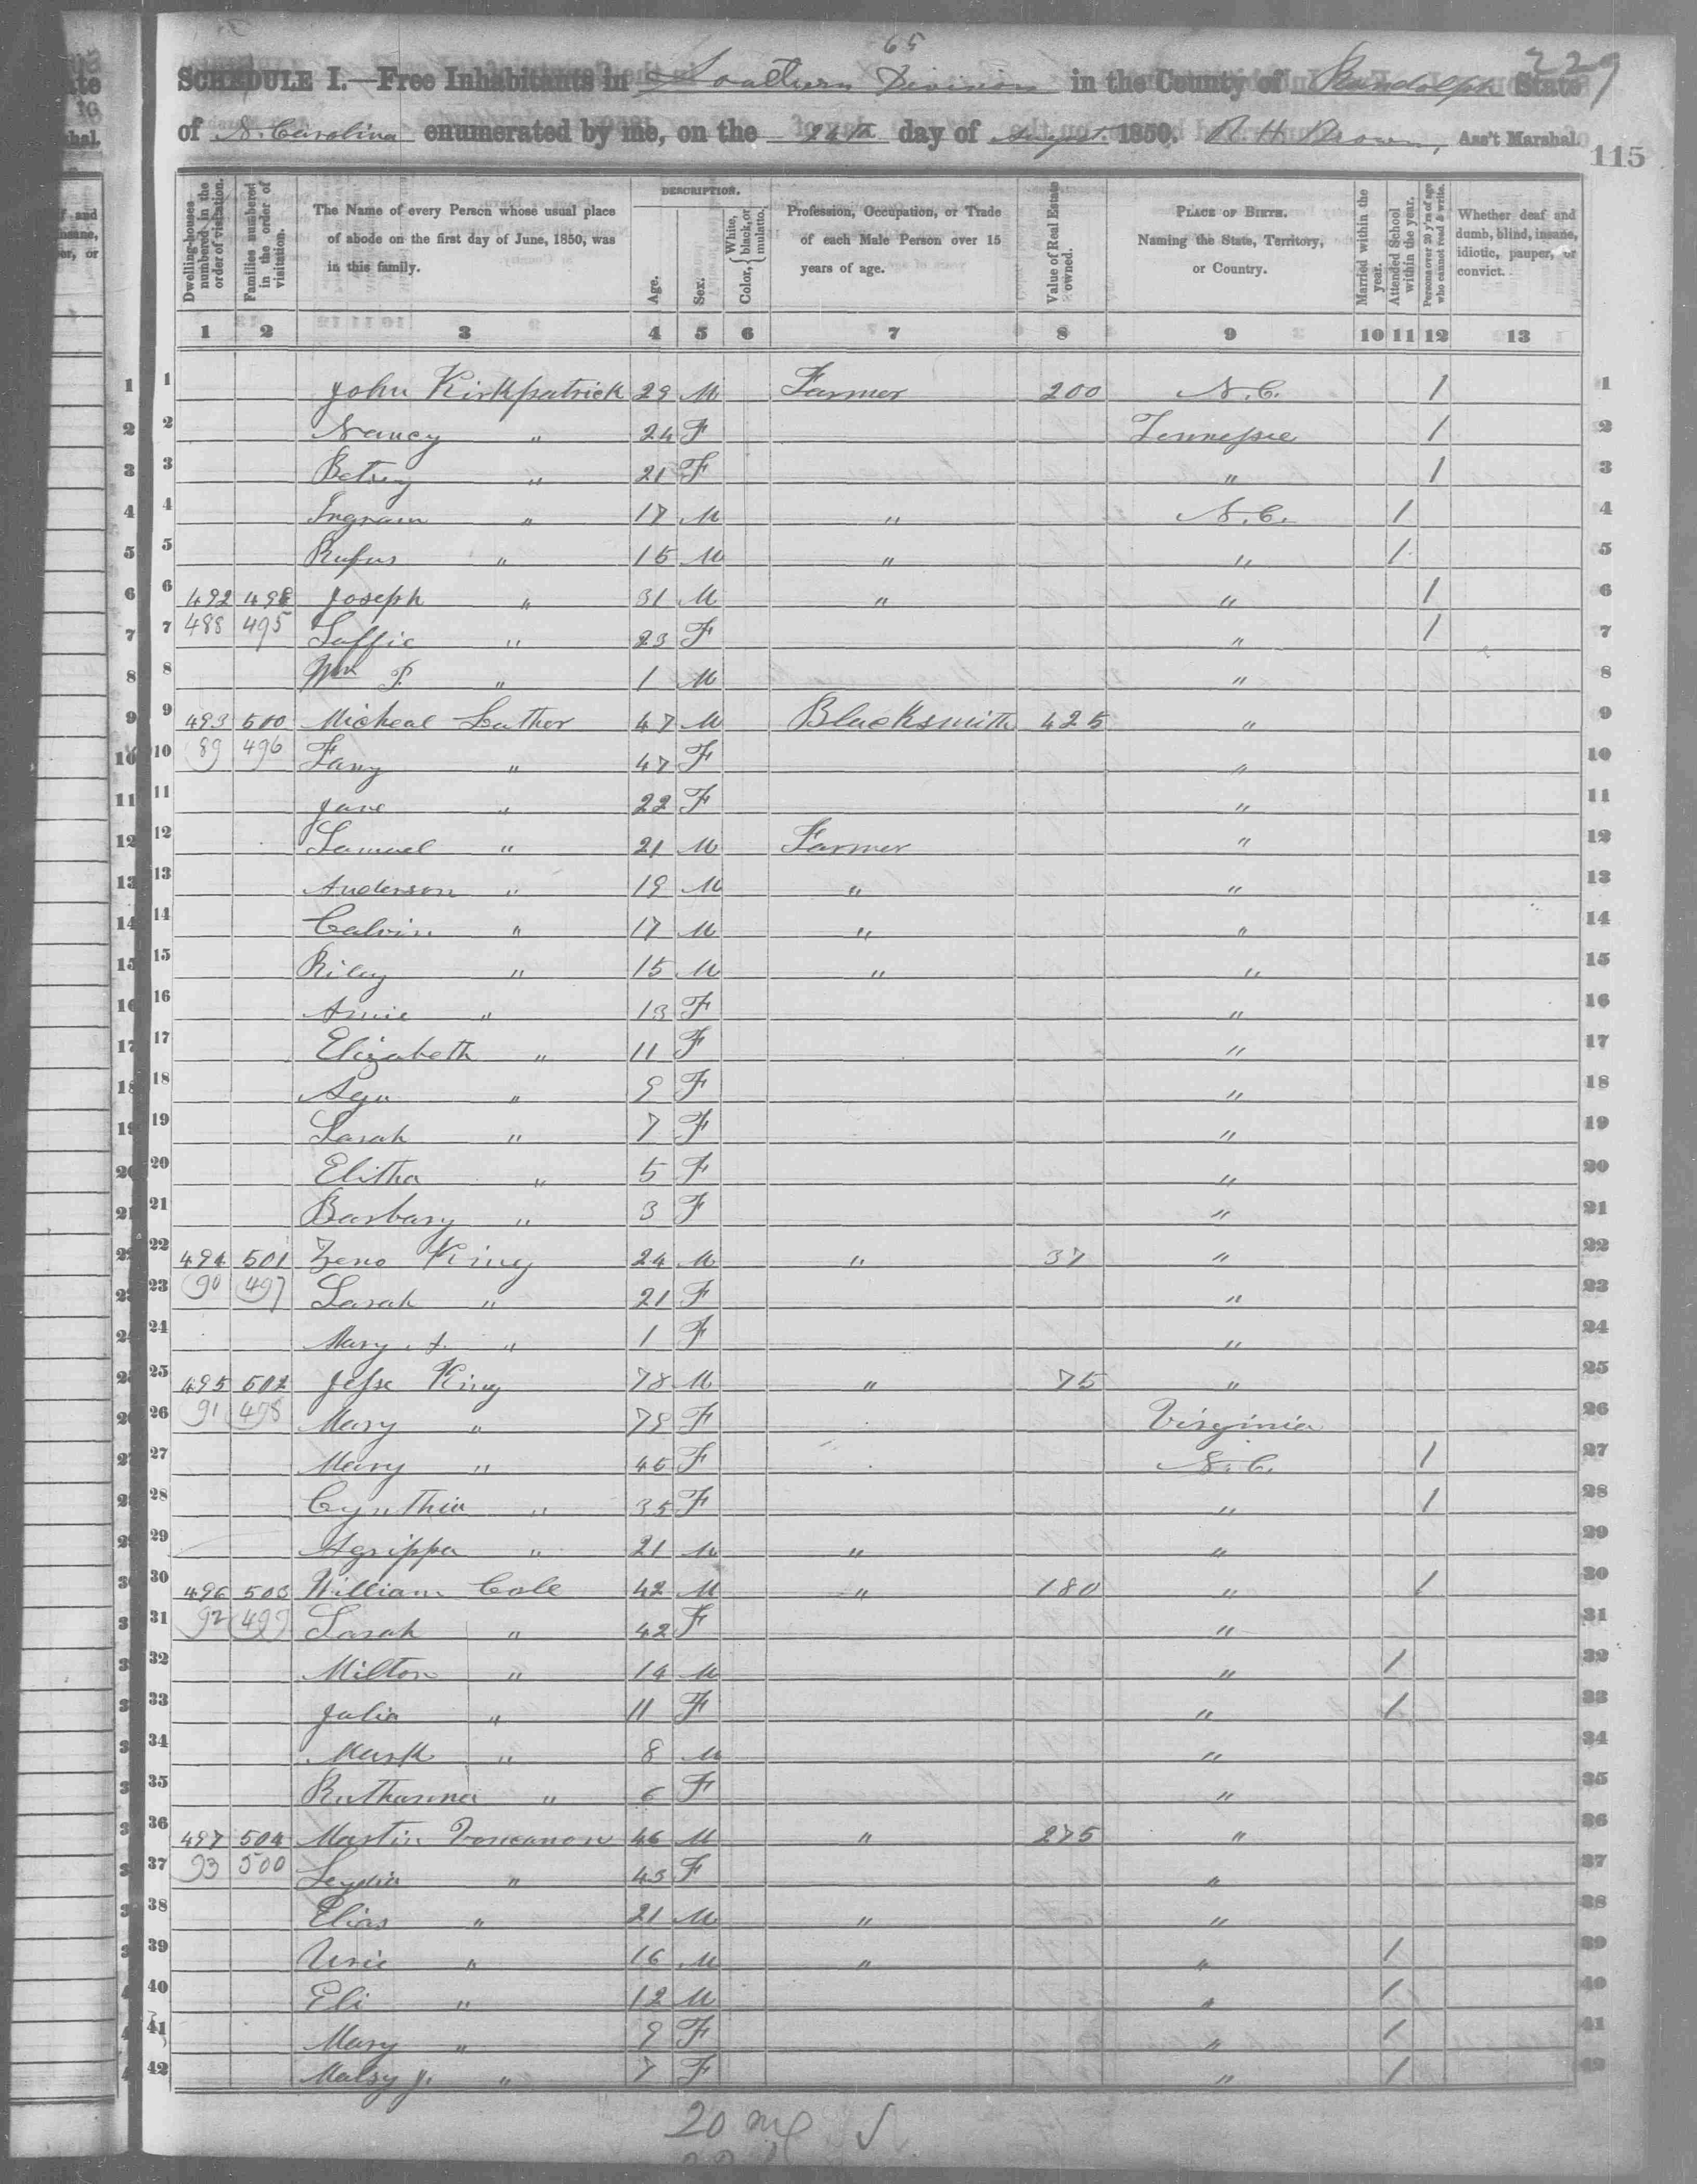 65
229
SCHEDULE I.—Free Inhabitants in Southern Division in the County of Randolph State
of N. Carolina enumerated by me, on the 24th day of August 1850. R. H. Brown, Ass't Marshal.
115
Dwelling-houses numbered in the order of visitation. Families numbered in the order of visitation. The Name of every Person whose usual place of abode on the first day of June, 1850, was in this family. DESCRIPTION. Age. Sex. Color, { White, black, or mulatto. Profession, Occupation, or Trade of each Male Person over 15 years of age. Value of Real Estate owned. PLACE OF BIRTH. Naming the State, Territory, or Country. Married within the year. Attended School within the year. Persons over 20 y'rs of age who cannot read & write. Whether deaf and dumb, blind, insane, idiotic, pauper, or convict.
1 2 3 4 5 6 7 8 9 10 11 12 13
1 John Kirkpatrick 29 M Farmer 200 N.C. / 1
2 Nancy " 24 F Tennessee / 2
3 Betsey " 21 F " / 3
4 Ingram " 17 M " N.C. / 4
5 Rufus " 15 M " " / 5
6 492 498 Joseph " 31 M " " / 6
7 488 495 Saffie " 23 F " / 7
8 Wm P. " 1 M " 8
9 493 500 Micheal Luther 47 M Blacksmith 425 " 9
10 89 496 Fany " 47 F " 10
11 Jane " 22 F " 11
12 Samuel " 21 M Farmer " 12
13 Anderson " 19 M " " 13
14 Calvin " 17 M " " 14
15 Riley " 15 M " " 15
16 Amie " 13 F " 16
17 Elizabeth " 11 F " 17
18 " 9 F " 18
19 Sarah " 7 F " 19
20 Elitha " 5 F " 20
21 Barbary " 3 F " 21
22 494 501 Zeno King 24 M " 37 " 22
23 90 497 Sarah " 21 F " 23
24 Mary A. " 1 F " 24
25 495 502 Jesse King 78 M " 75 " 25
26 91 498 Mary " 78 F Virginia 26
27 Mary " 45 F N.C. / 27
28 Cynthia " 35 F " / 28
29 Agrippa " 21 M " " 29
30 496 503 William Cole 42 M " 180 " / 30
31 92 499 Sarah " 42 F " 31
32 Milton " 14 M " / 32
33 Julia " 11 F " / 33
34 Mark " 8 M " 34
35 Ruthanna " 6 F " 35
36 497 504 Martin Voncanon 46 M " 275 " 36
37 93 500 Leydia " 43 F " 37
38 Elias " 21 M " " 38
39 " 16 M " " / 39
40 Eli " 12 M " / 40
41 Mary " 9 F " / 41
42 Malsy J. " 7 F " / 42
20 m